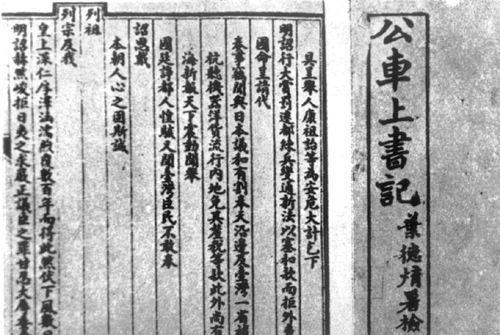 公車上書記
葉德署檢
具呈舉人康祖詒等為安危大計乞下
明詔行大賞罰遷都練兵變通新法以塞和款而拒外
國命呈請代
奏事竊聞與日本議和有割奉天沿邊及臺灣一省
杭聽機器洋貨流行內地免其釐稅等款此外尚有
海新報天下震動聞舉
國廷諍都人惶駭又聞臺灣臣民不敢奉
詔思戴
本朝人心之固斯誠
列祖
列宗及我
皇上深仁厚澤涵濡煦覆數百年而得此然伏下風數
明詔赫然峻拒日夷之求嚴正議臣之罪甘忍大辱委